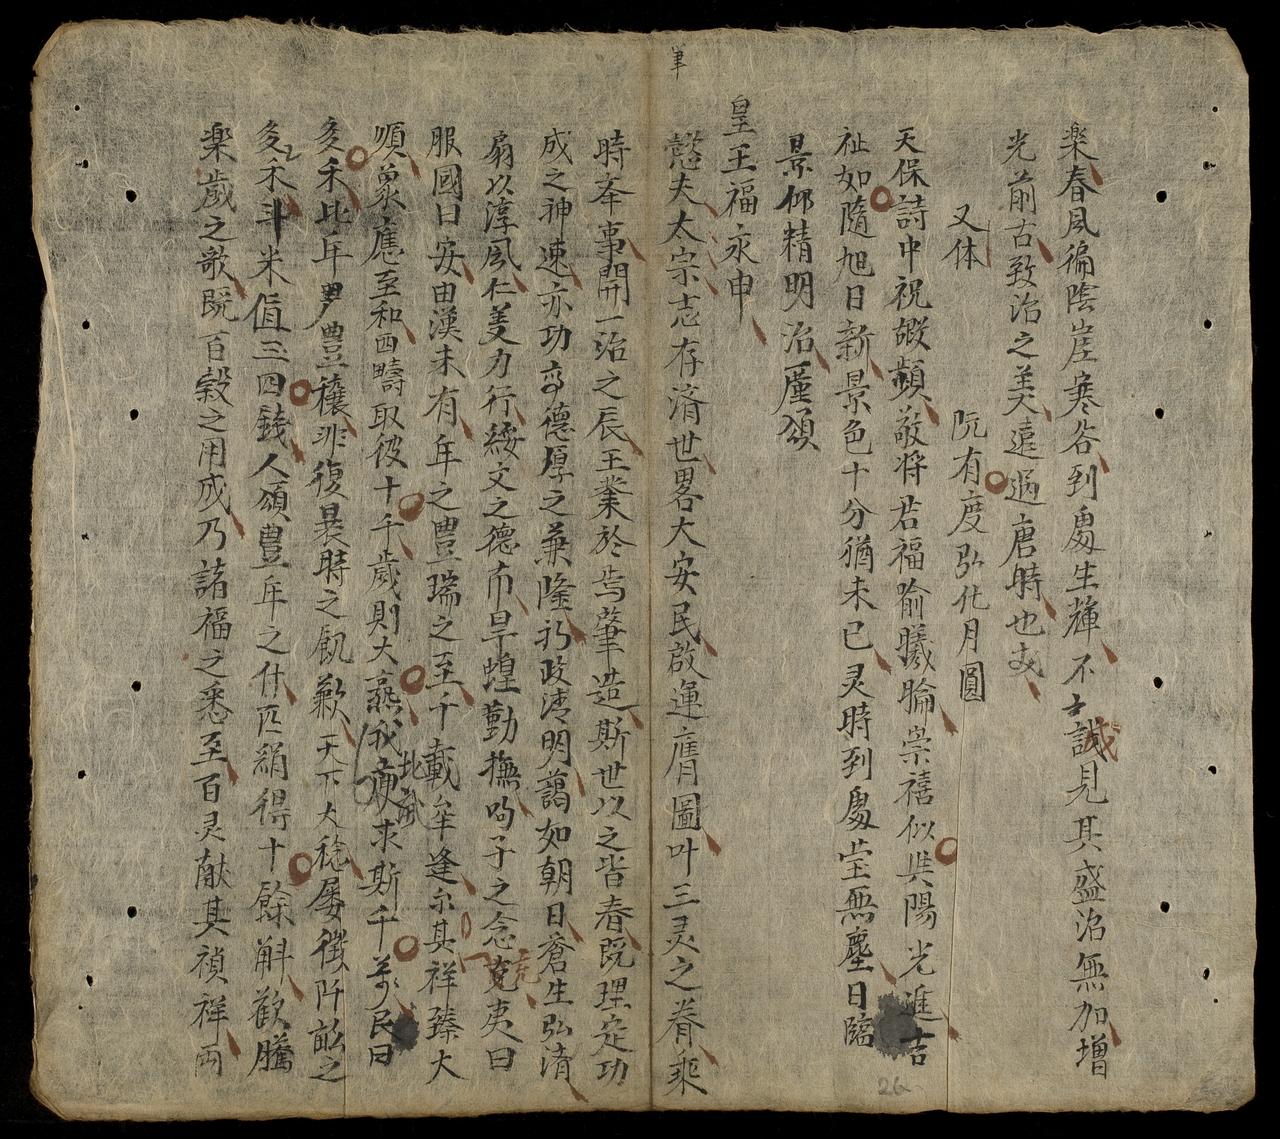 楽春風徧陰崖寒谷到處生輝不士誠見其盛治無加增
光前古致治之美遠過唐時也哉
又体 阮有度弘化月圓
天保詩中祝嘏頻敬将君福喻曦輪崇禧似與陽光進吉
祉如隨旭日新景色十分猶未已灵時到處塋無塵日臨
景仰精明治塵頌
皇王福永申
懿夫太宗志存済世畧大安民啟運膺圖叶三灵之眷乘
時奉事開一治之辰王業於焉肇造斯世以之皆春既理定功
成之神速亦功高德厚之兼隆初政清明藹如朝日蒼生弘清
扇以淳風仁義力行綏文之德而旱蝗勤撫呴子之念克夷曰
服國曰安由漢未有年之豊瑞之至千載年逢尔其祥臻大
順象應至和西疇取彼十千歲則大燕我庾求斯千萬民曰
多禾比年豊穰非復曩時之飢歉天下大稔屡徵阡畝之
多禾斗米值三四錢人頌豊年之什匹絹得十餘斛歡騰
楽歲之歌既百穀之用成乃諸福之悉至百灵献其禎祥両
筆
26